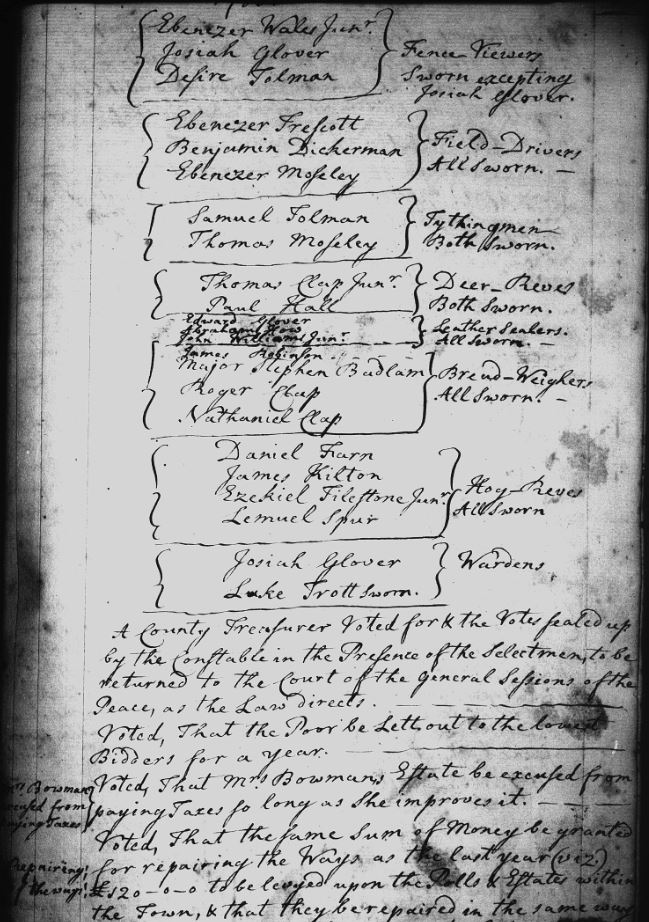 Ebenezer Wales Junr.
Josiah Glover
Desire Tolman
Fence Viewers
Sworn excepting
Josiah Glover.
Ebenezer Trescott
Benjamin Dickerman
Ebenezer Moseley
Field-Drivers
All Sworn. —
Samuel Tolman
Thomas Moseley
Tythingmen
Both Sworn.
Thomas Clap Junr.
Paul Hall
Deer-Reves
Both Sworn.
Edward Glover
Abraham How
John Williams Junr.
Leather Sealers.
All Sworn. —
James Robinson
Major Stephen Badlam
Roger Clap
Nathaniel Clap
Bread-Weighers
All Sworn. —
Daniel Farn
James Kilton
Ezekiel Fileftone Junr.
Lemuel Spur
Hog-Reves
All Sworn
Josiah Glover
Luke Trott Sworn.
Wardens
A County Treasurer Voted for & the Votes sealed up
by the Constable in the Presence of the Selectmen, to be
returned to the Court of the General Sessions of the
Peace, as the Law directs.
Voted, That the Poor be Lett out to the lowest
Bidders for a year.
Voted, That Mrs Bowmans Estate be excused from
paying Taxes so long as She improves it.
Voted, That the same Sum of Money be granted
for repairing the Ways as the last year (viz.)
£120-0-0 to be levyed upon the Polls & Estates within
the Town, & that they be repaired in the same
Bowman
excused from
paying Taxes
Repairing
the ways